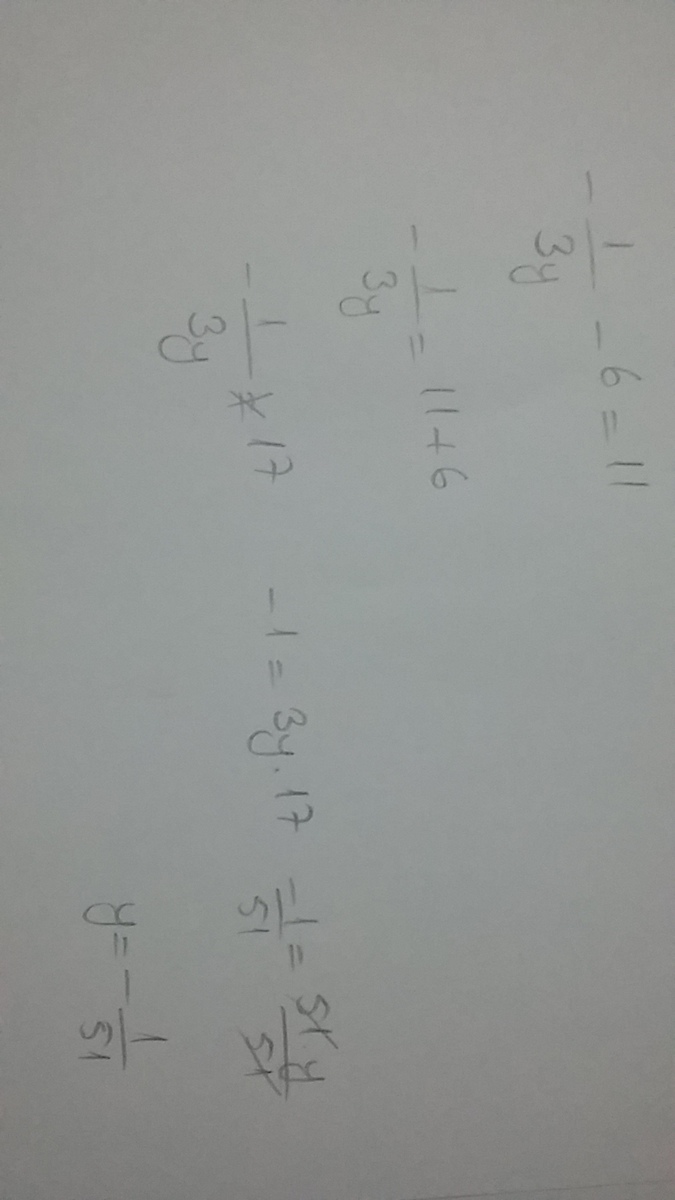 -1/3y - 6 = 11
-1/3y = 11 + 6
-1/3y ⚹ 17   -1 = 3y · 17   -1/51 = 51 y/51
y = -1/51